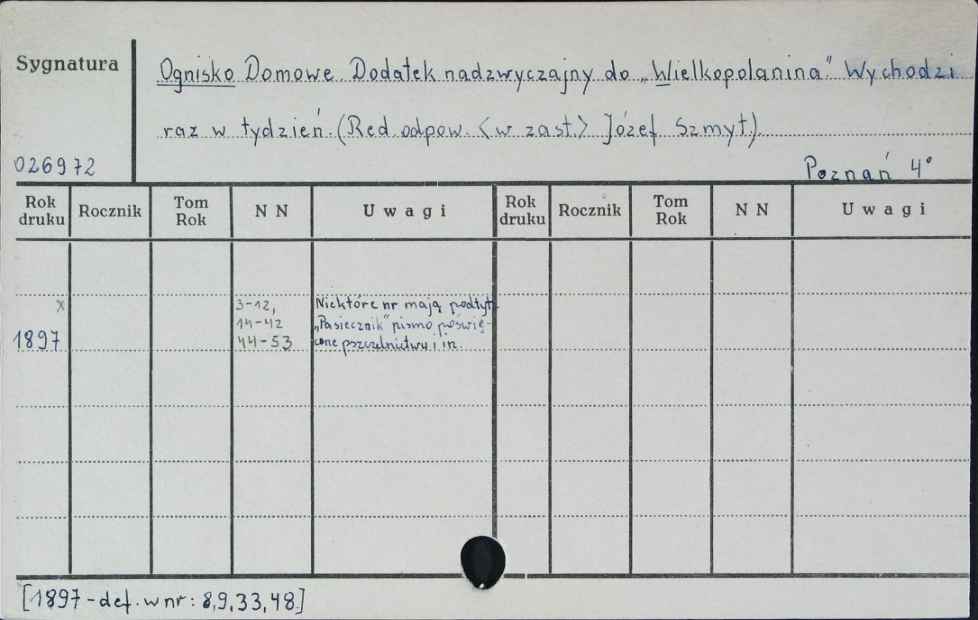 Sygnatura
Ognisko Domowe. Dodatek nadzwyczajny do „Wielkopolanina" Wychodzi
raz w tydzień. (Red. odpow. <w zast.> Józef Szmyt).
026972
Poznań 4°
Rok druku Rocznik Tom Rok N N Uwagi Rok druku Rocznik Tom Rok N N Uwagi
x 3-12, Niektóre nr mają podtyt.
14-42 „Pasiecznik" pismo poświę-
1897 44-53 cone pszczelnictwu i in.
[1897 - def. w nr: 8,9,33,48]